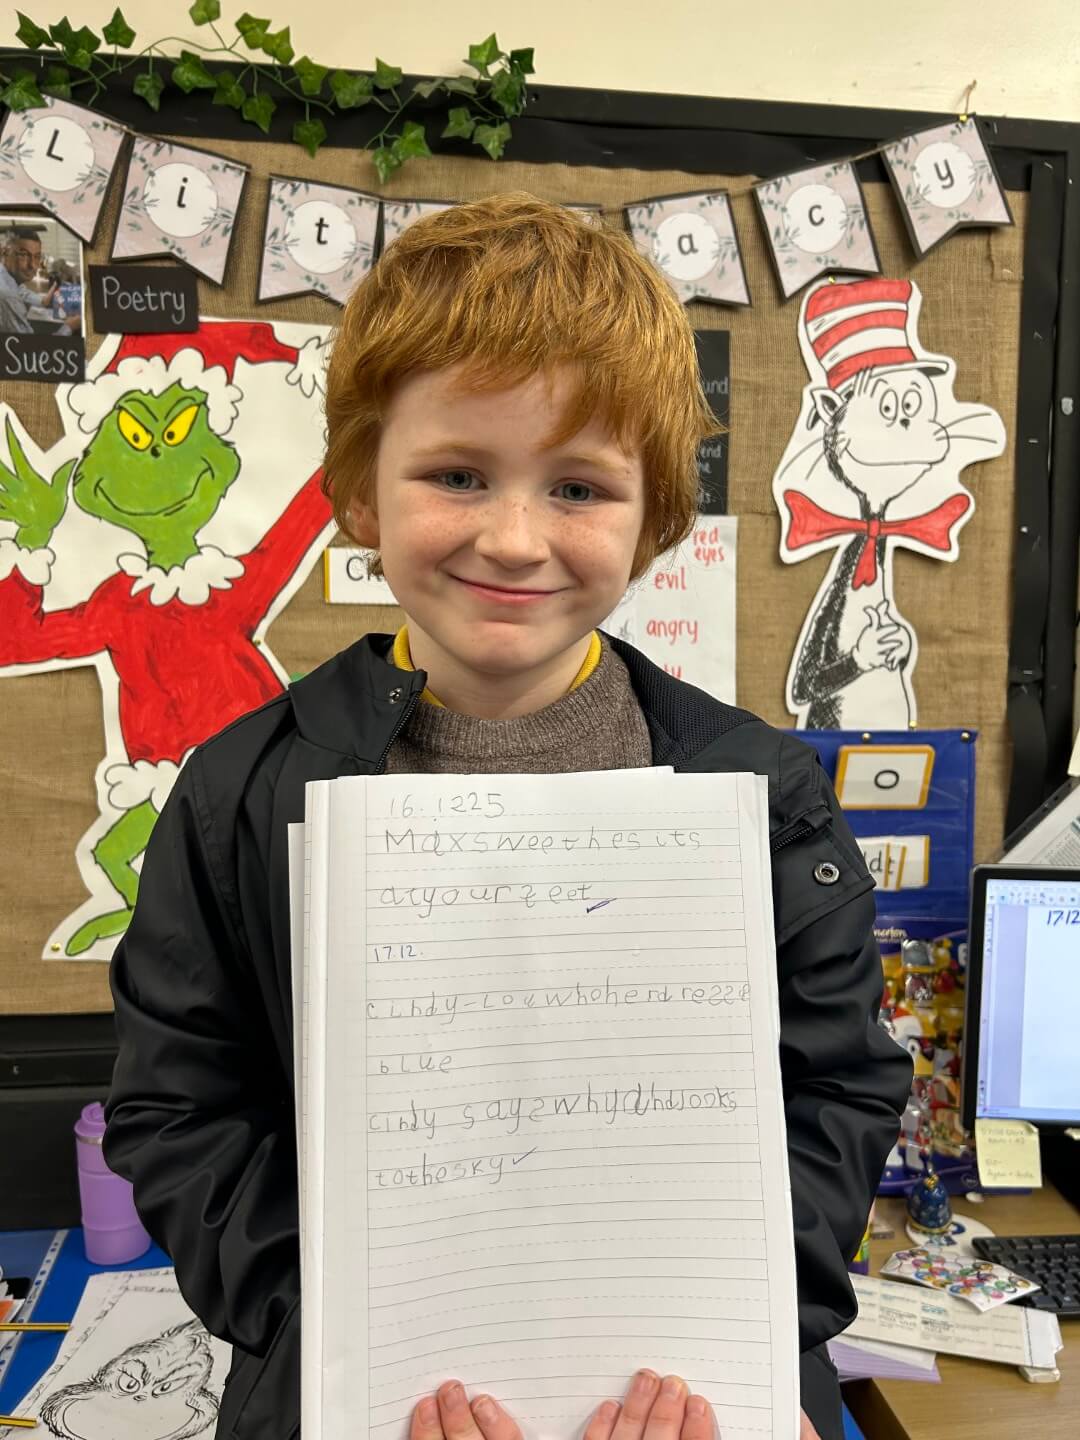 L i t a c y
Poetry
Suess
red
eyes
evil
angry
o
16.1225
Maxsweethesits
atyourfeet
17.12.
cindy-Louwhoherdresse
blue
cindy sayswhyandlooks
tothesky
17.12